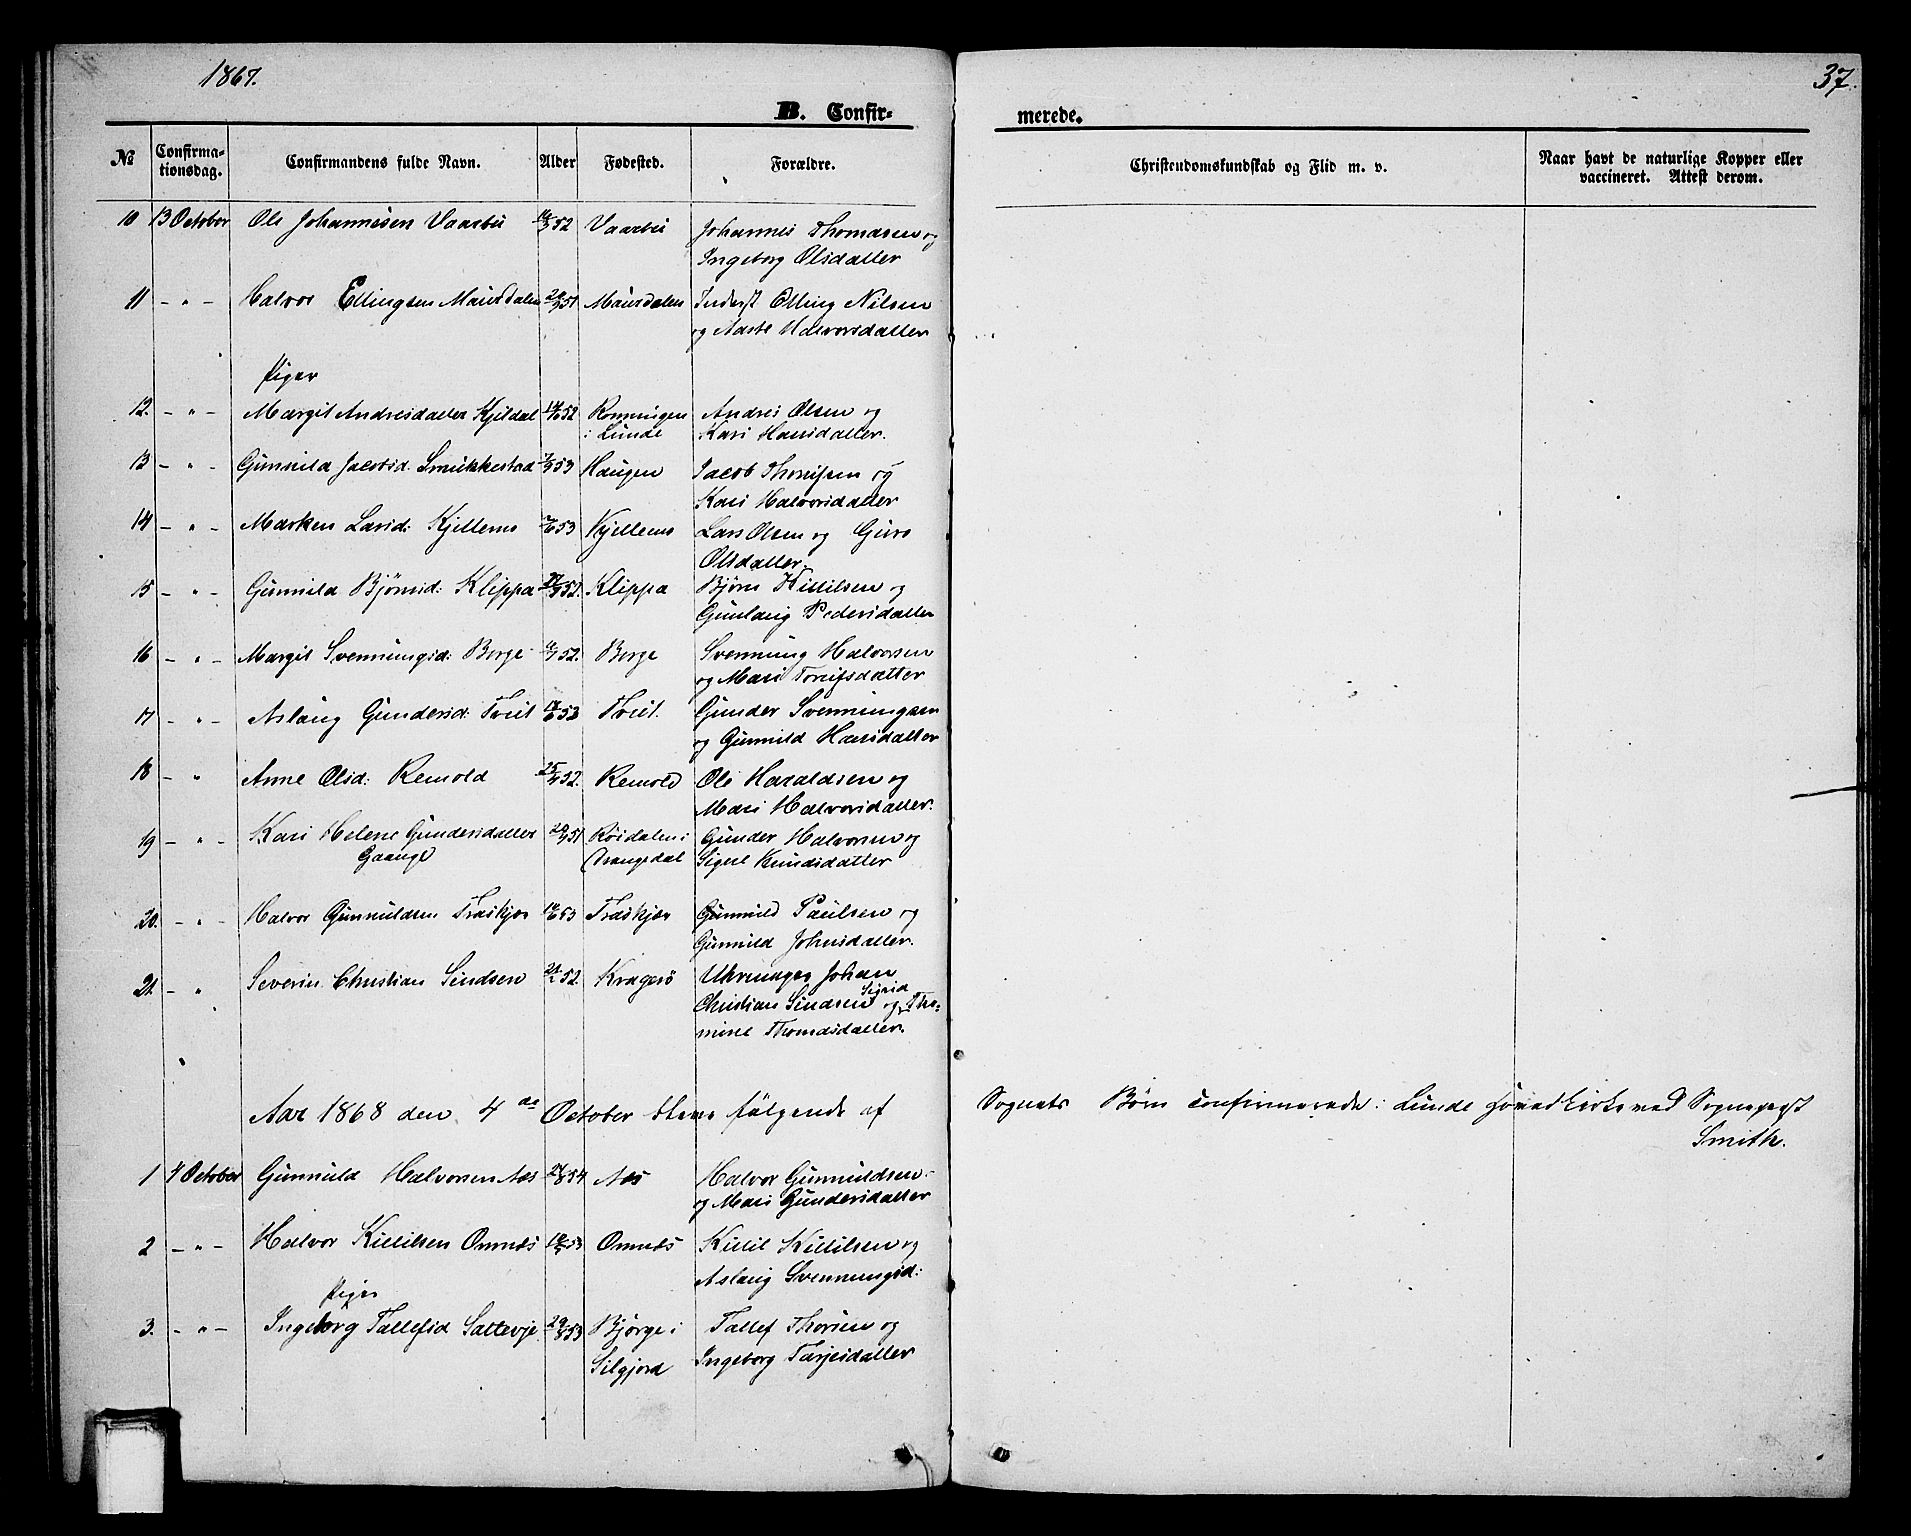 1867.
37.
B. Confir-
merede.
No
Confirma-
tionsdag.
Confirmandens fulde Navn.
Alder
Fødested.
Forældre.
Christendomskundskab og Flid m. v.
Naar havt de naturlige Kopper eller
vaccineret. Attest derom.
10 13 October Ole Johannesen Vaarbu 52 Vaarbu Johannes Thomasen og
Ingeborg Olsdatter
11 - " - Halvor Ellingsen Mausdalen 51 Mausdalen Inderst Elling Nilsen
og Aaste Halvorsdatter
Piger
12. - " - Margit Andreisdatter Kjeldal 52 Rønningen Andres Olsen og
i Lunde Kari Hansdatter.
13 - " - Gunnild Jacobsd. Smukkestad 53 Haugen Jacob Thorsen og
Kari Halvorsdatter
14 - " Marken Larsd: Kjellemo 53 Kjellemo Lars Olsen og Guro
Olsdatter.
15 - " - Gunnild Bjørnsd: Klippa 27/9 52. Klippa Bjørn Kittilsen og
Gunlaug Pedersdatter
16 - " - Margit Svenningsd: Borge 52. Borge Svenning Halvorsen
og Mari Torsdatter
17 - " Aslaug Gundersd: Tveit 53 Tveit. Gunder Svenningsen
og Gunnild Hansdatter
18 - " Anne Olsd: Remold 25/4 52. Remold Ole Haraldsen og
Mari Halvorsdatter.
19 - " - Kari Helene Gundersdatter 51 Røisdalen i Gunder Halvorsen og
Gaauge Drangedal Sigrid Knudsdatter
20. - " - Halvor Gunnuldsen Traskjær 53 Traskjær Gunnuld Paulsen og
Gunnild Johnsdatter.
21. - " Severin Christian Sindsen 52. Kragerö Uhrmager Johan
Christian Sindsen og Sigrid Tho-
mine Thomasdatter.
Aar 1868 den 4de October bleve følgende af Sognets Børn confirmerede i Lunde Hovedkirke ved Sognepræst
Smith.
1 4 October Gunnuld Halvorsen Aas 54 Aas Halvor Gunnuldsen
og Mari Gundersdatter
2 - " - Halvor Kittilsen Omnes 53 Omnes Kittil Kittilsen og
Aslaug Svenningsd:
Piger
3. - " - Ingeborg Tallefsd Saltevje 29/8 53 Bjørge i Tallef Thorsen og
Silgjord Ingeborg Tarjeisdatter